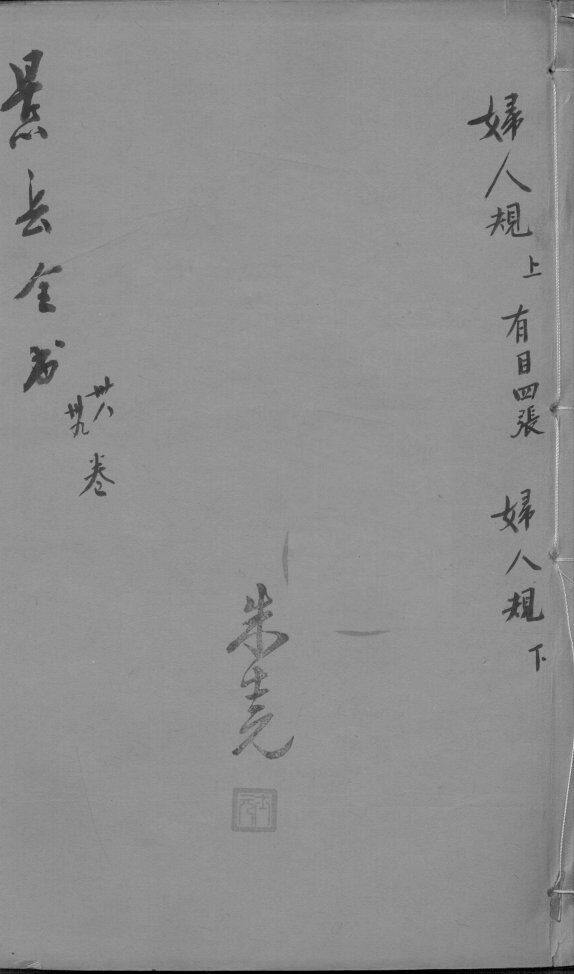 婦人規上 有目四張 婦人規下
朱士元
士元
景岳全书
卅八
卅九
卷